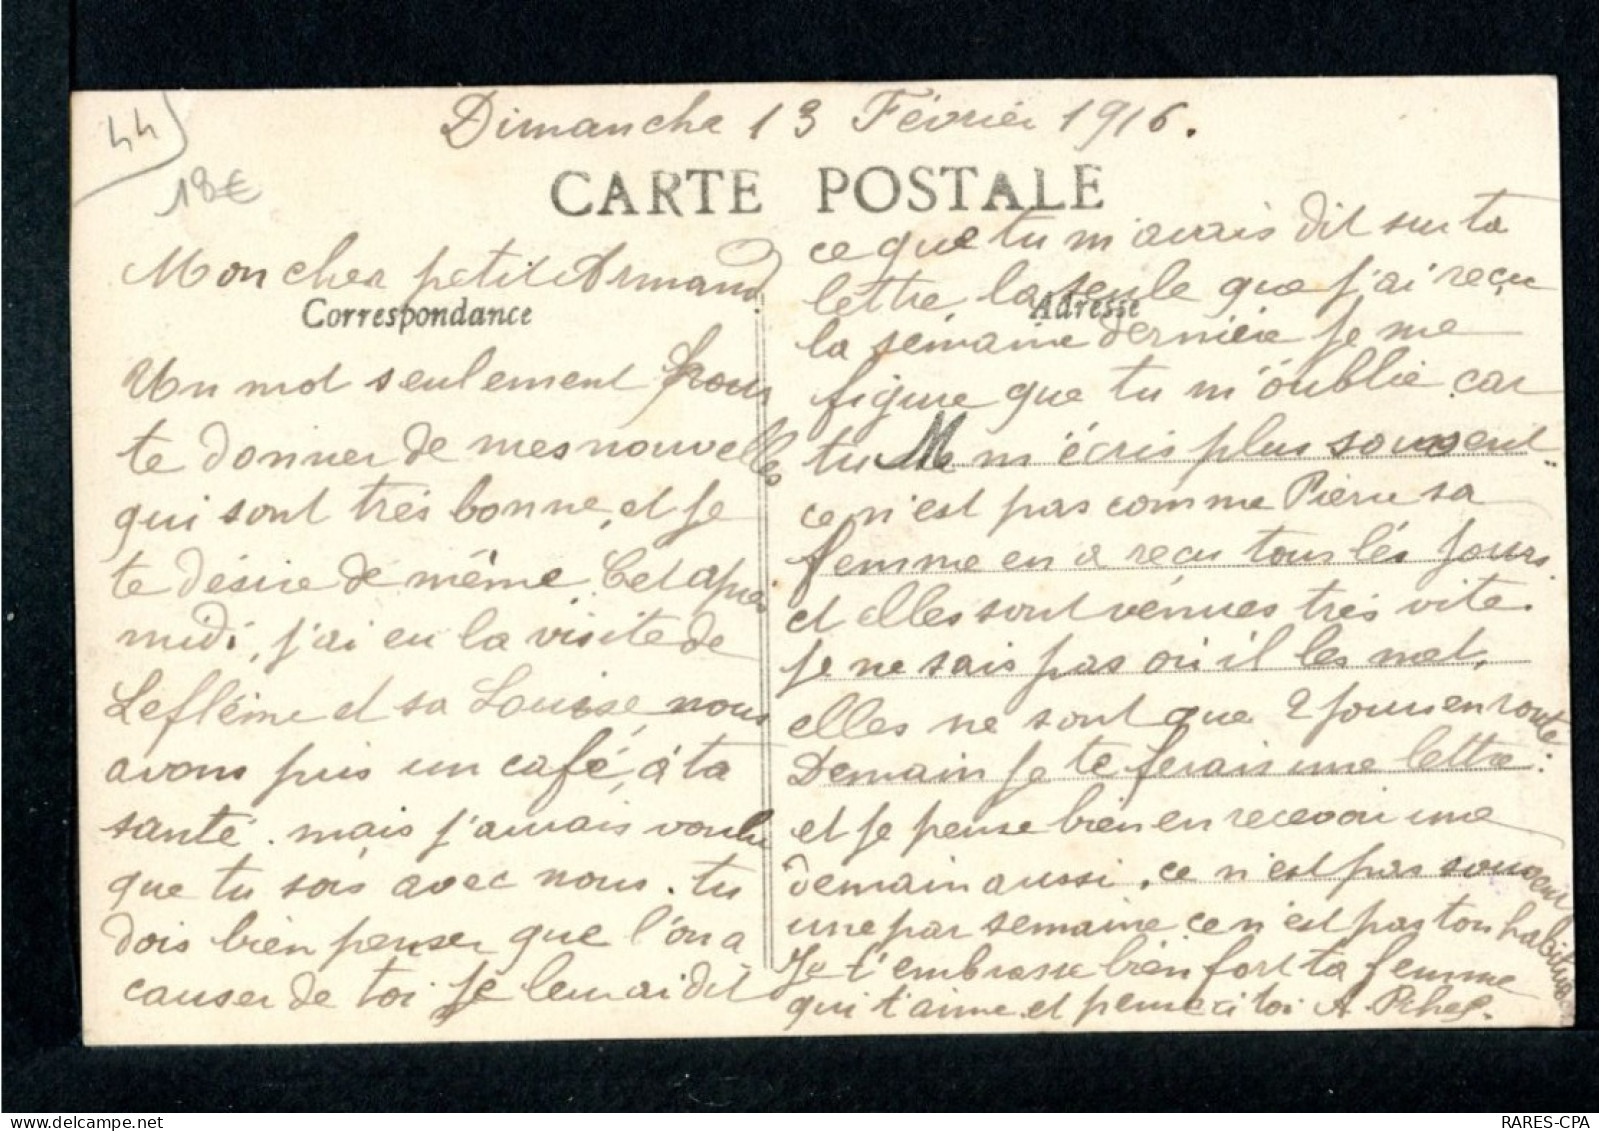 44
18€
Dimanche 13 Février 1916.
CARTE POSTALE
Mon cher petit Armand
Correspondance
Un mot seulement pour
te donner de mes nouvelles
qui sont très bonne, et je
te désire de même. Cet après
midi, j'ai eu la visite de
Lefléme et sa Louise, nous
avons pris un café, à ta
santé. mais j'aurais voulu
que tu sois avec nous. tu
dois bien penser que l'on a
causer de toi je leur ai dit
ce que tu m'avais dit sur ta
lettre, la seule que j'ai reçu
Adresse
la semaine dernière je me
figure que tu m'oublie car
tu m'écris plus souvent.
ce n'est pas comme Pierre sa
femme en a reçu tous lés jours.
et elles sont venues très vite.
je ne sais pas où il les met,
elles ne sont que 2 jours en route
Demain je te ferais une lettre.
et je pense bien en recevoir une
demain aussi, ce n'est pas souvent
une par semaine ce n'est pas ton habitude
Je t'embrasse bien fort ta femme
qui t'aime et pense à toi A.
RARES-CPA